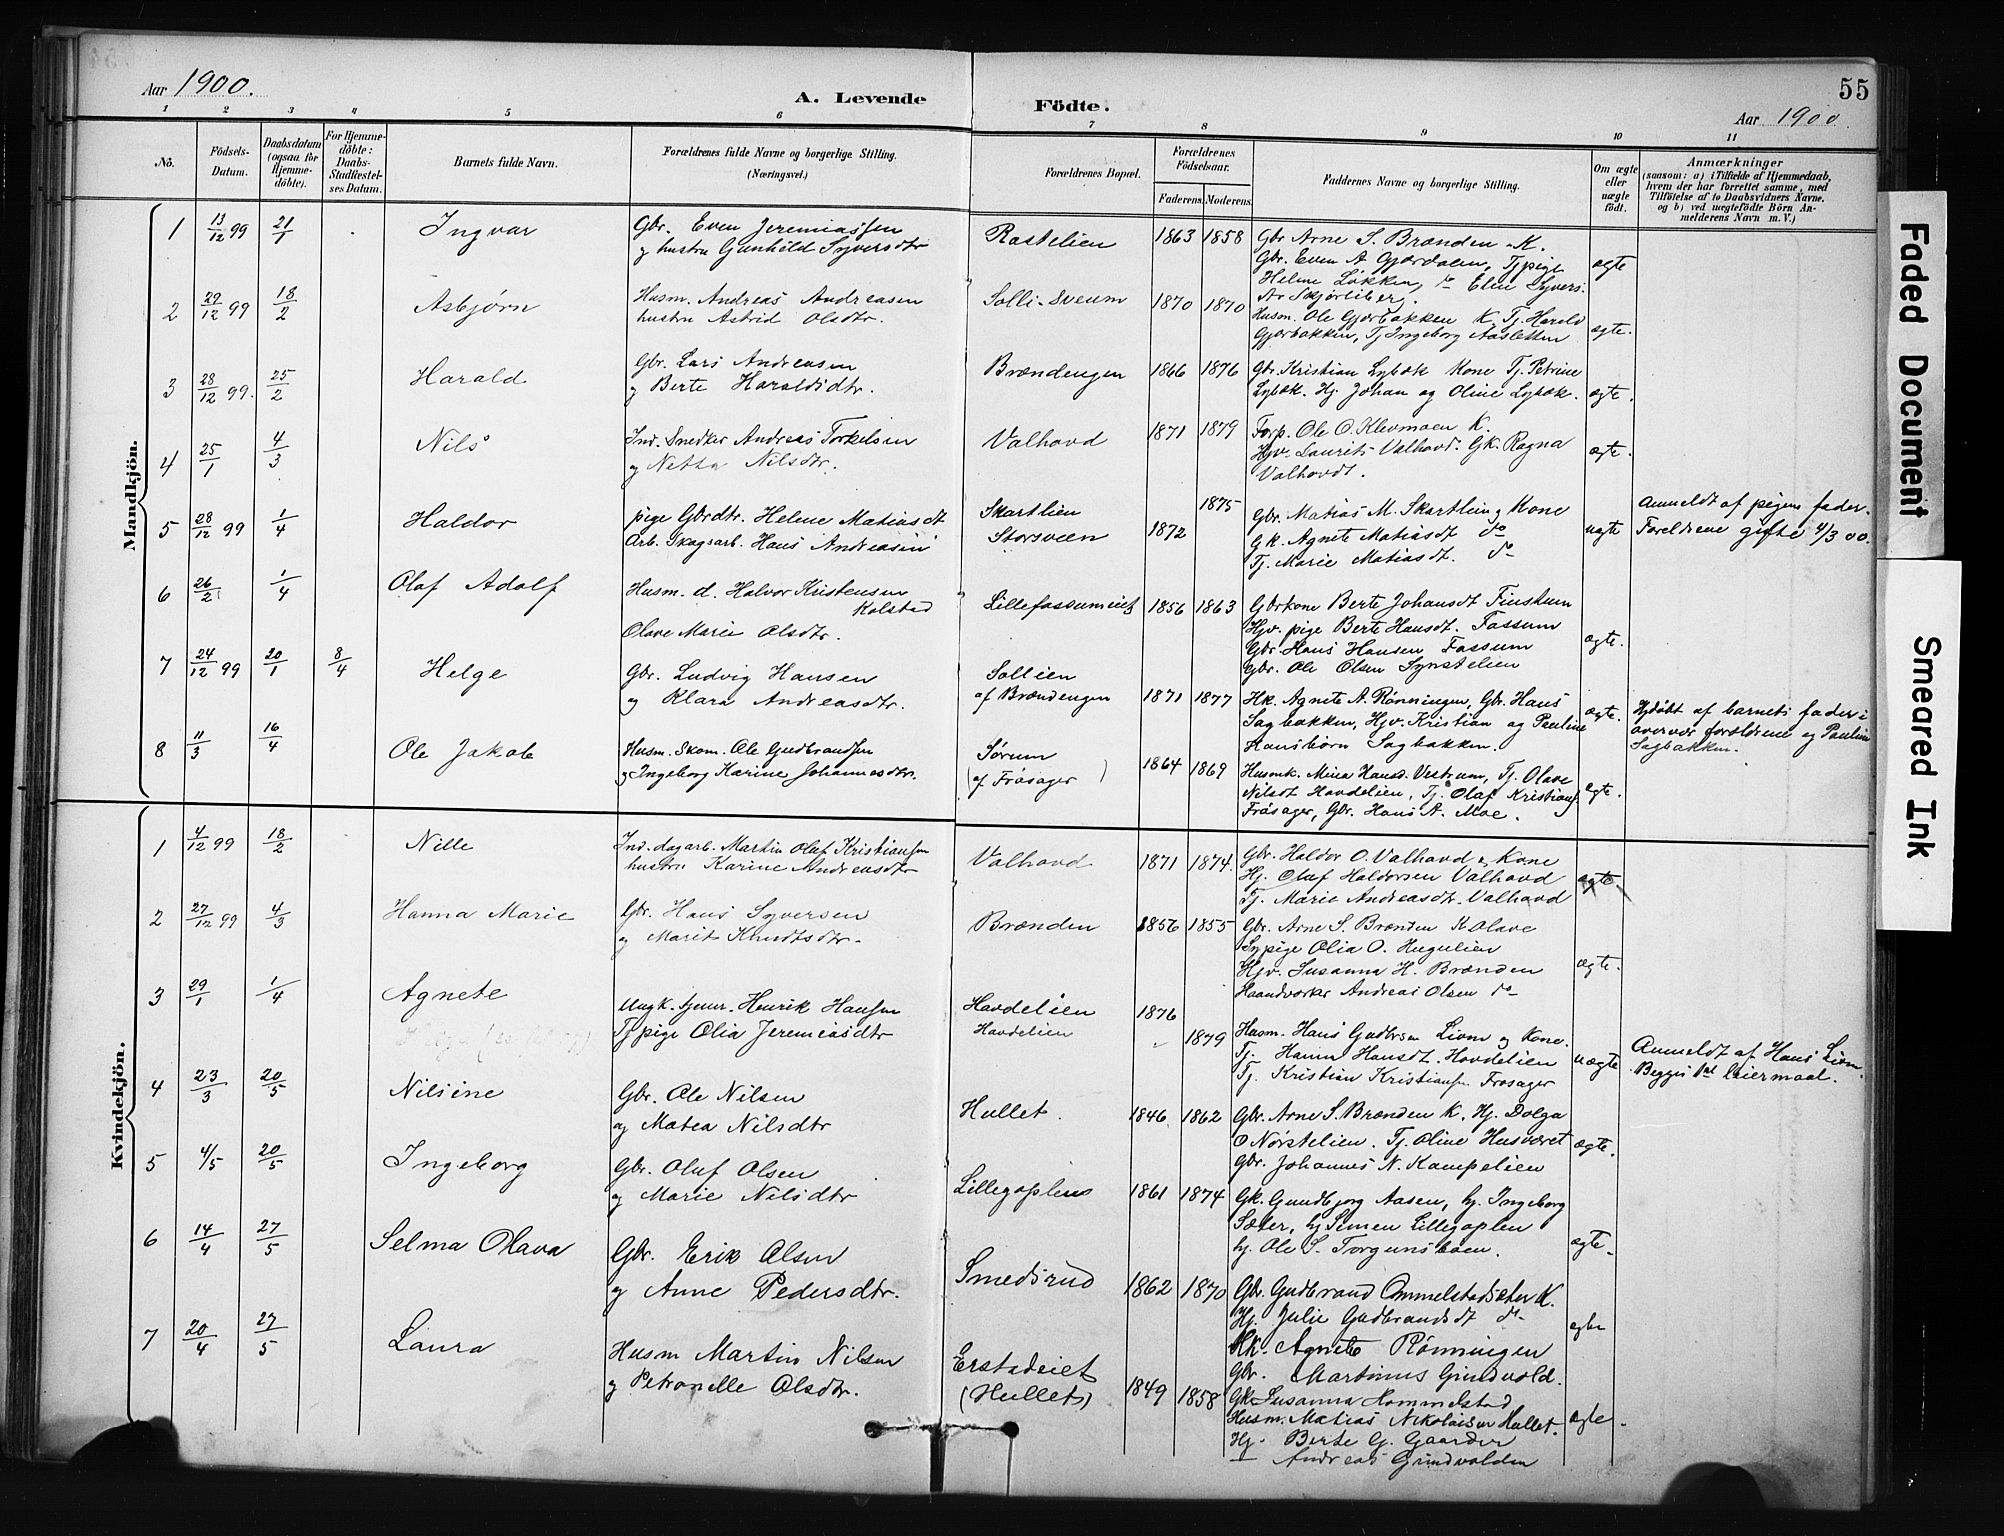 Aar 1900.
A. Levende Födte.
55
Aar 1900.
1 2 3 4 5 6 7 8 9 10 11
No.
Födsels-Datum.
Daabsdatum (ogsaa for Hjemme-döbte).
For Hjemme-döbte: Daabs-Stadfæstel-ses Datum.
Barnets fulde Navn.
Forældrenes fulde Navne og borgerlige Stilling. (Næringsvei.)
Forældrenes Bopæl.
Forældrenes Födselsaar. Faderens. Moderens.
Faddernes Navne og borgerlige Stilling.
Om ægte eller uægte födt.
Anmærkninger
(saasom: a) i Tilfælde af Hjemmedaab, hvem der har forrettet samme, med Tilföielse af to Daabsvidners Navne. og b) ved uægtefödte Börn An-melderens Navn m. V.)
Mandkjön.
1 13/12 99 21/1 Ingvar
Gbr. Even Jeremiassen
og hustru Gunhild Syversdtr
Rastelien 1863 1858
Gbr Arne S. Brænden K.
Gbr. Even A Gjærdalen, Tjpige
Helene Løkken, do Elin Syvers.
Av Skjørliberg.
ægte
2 29/12 99 18/2 Asbjörn
Husm. Andreas Andreasen
hustru Astrid Olsdtr.
Solli-Sveum 1870 1870
Husm. Ole Gjørbakken K, Tj. Harald
Gjørbakken, Tj Ingeborg Aasletten
ægte.
3 28/12 99. 25/2 Harald
Gbr. Lars Andreasen
og Berte Haraldsdtr.
Brændengen 1866 1876
Gbr. Kristian Lybæk Kone Tj. Petrine
Lybæk. Hj. Johan og Oline Lybæk.
ægte.
4 25/1 4/3 Nils
Ind. Snedker Andreas Torkelsen
og Netta Nilsdtr.
Valhovd 1871 1879
Forp. Ole O. Klevmoen K.
Hjv. Laurits Valhovd. Gk. Ragna
Valhovdt.
ægte.
5 28/12 99 1/4 Haldor
pige Gbrdtr. Helene Matiasdt
Arb. Skogsarb. Hans Andreasen
Skartlien 1875
Storsveen 1872
Gbr. Matias M. Skartlien og Kone
Gk. Agnete Matiasdt do
Tj. Marie Matiasdt. do
uægte
Anmeldt af pigens fader.
Foreldrene gifte 4/3 00.
6 26/2 1/4 Olaf Adolf
Husm. d. Halvor Kristensen
Kolstad
Olave Marie Olsdtr.
Lillefossumeiet 1856 1863
Gbrkone Berte Johansdt Finstuen
Hjv. pige Berte Hansdt. Fossum
Gbr Hans Hansen Fossum
Gbr. Ole Olsen Synstelien
ægte.
7 24/12 99 20/1 8/4 Helge
Gbr. Ludvig Hansen
og Klara Andreasdtr.
Sollien
af Brændengen 1871 1877
Hk. Agnete A. Rönningen, Gbr. Hans
Sagbakken, Hjv. Kristian og Pauline
Hansbörn Sagbakken.
ægte.
Hjdöbt af barnets fader i
overvær forældrene og Pauline
Sagbakken.
8 11/3 16/4 Ole Jakob
Husm. Skom. Ole Gudbrandsen
og Ingeborg Karine Johannesdtr.
Sørum
(af Frösager) 1864 1869
Husmk. Mina Hansd. Vestrum, Tj. Olave
Nilsdt Hovdelien, Tj. Olaf Kristians.
Frösager, Gbr. Hans A. Moe.
ægte.
Kvindekjön.
1 4/12 99 18/2 Nille
Ind. dagarb. Martin Oluf Kristiansen
hustru Karine Andreasdtr
Valhovd 1871 1874
Gbr. Haldor O. Valhovd og Kone
Hj. Oluf Haldorsen Valhovd
Tj. Marie Andreasdt. Valhovd
ægte
2 27/12 99 4/3 Hanna Marie
Gbr. Hans Syversen
og Marit Knudtsdtr.
Brænden 1856 1855
Gbr. Arne S. Brænden K Olave
Sypige Olia O. Hugulien
Hjv. Susanna H. Brænden
Haandværker Andreas Olsen do
ægte.
3 29/1 1/4 Agnete
Ungk. tjener. Henrik Hansen
Tjpige Olia Jeremiasdtr
Hovdelien 1876
Hovdelien 1879
Husm. Hans Gulbrsen Lion og Kone.
Tj. Hanna Hansdt. Hovdelien
Tj. Kristian Kristians. Frosager
uægte
Anmeldt af Hans Lion.
Begges 1ste leiermaal.
4 23/3 20/5 Nilsine
Gbr. Ole Nilsen
og Matea Nilsdtr
Hullet. 1846 1862
Gbr. Arne S. Brænden K. Hj. Dolga
O Nørstelien. Tj. Oline Husværet
Gbr. Johannes N. Kampelien
ægte.
5 4/5 20/5 Ingeborg
Gbr. Oluf Olsen
og Marie Nilsdtr
Lillegoplen 1861 1874
Gk. Gundbjorg Aasen, hj. Ingeborg
Sæter, hj Simen Lillegoplen
hj. Ole S. Torgunsboen.
ægte.
6 14/4 27/5 Selma Olava
Gbr. Erik Olsen
og Anne Pedersdtr.
Smedsrud 1862 1870
Gbr. Gudbrand Ommelstadsæter K.
Hj. Julie Gudbrandsdt do
Hk. Agnete Rönningen
Gbr. Martinus Grindvold.
ægte
7 20/4 27/5 Laura
Husm Martin Nilsen
og Petronelle Olsdtr.
Erstadeiet
(Hullet) 1849 1858
Gk Susanna Hommelstad
Husm. Matias Nikolaisen Hullet.
Hj. Berte G. Gaarder
Andreas Grindvolden
ægte.
Faded Document
Smeared Ink